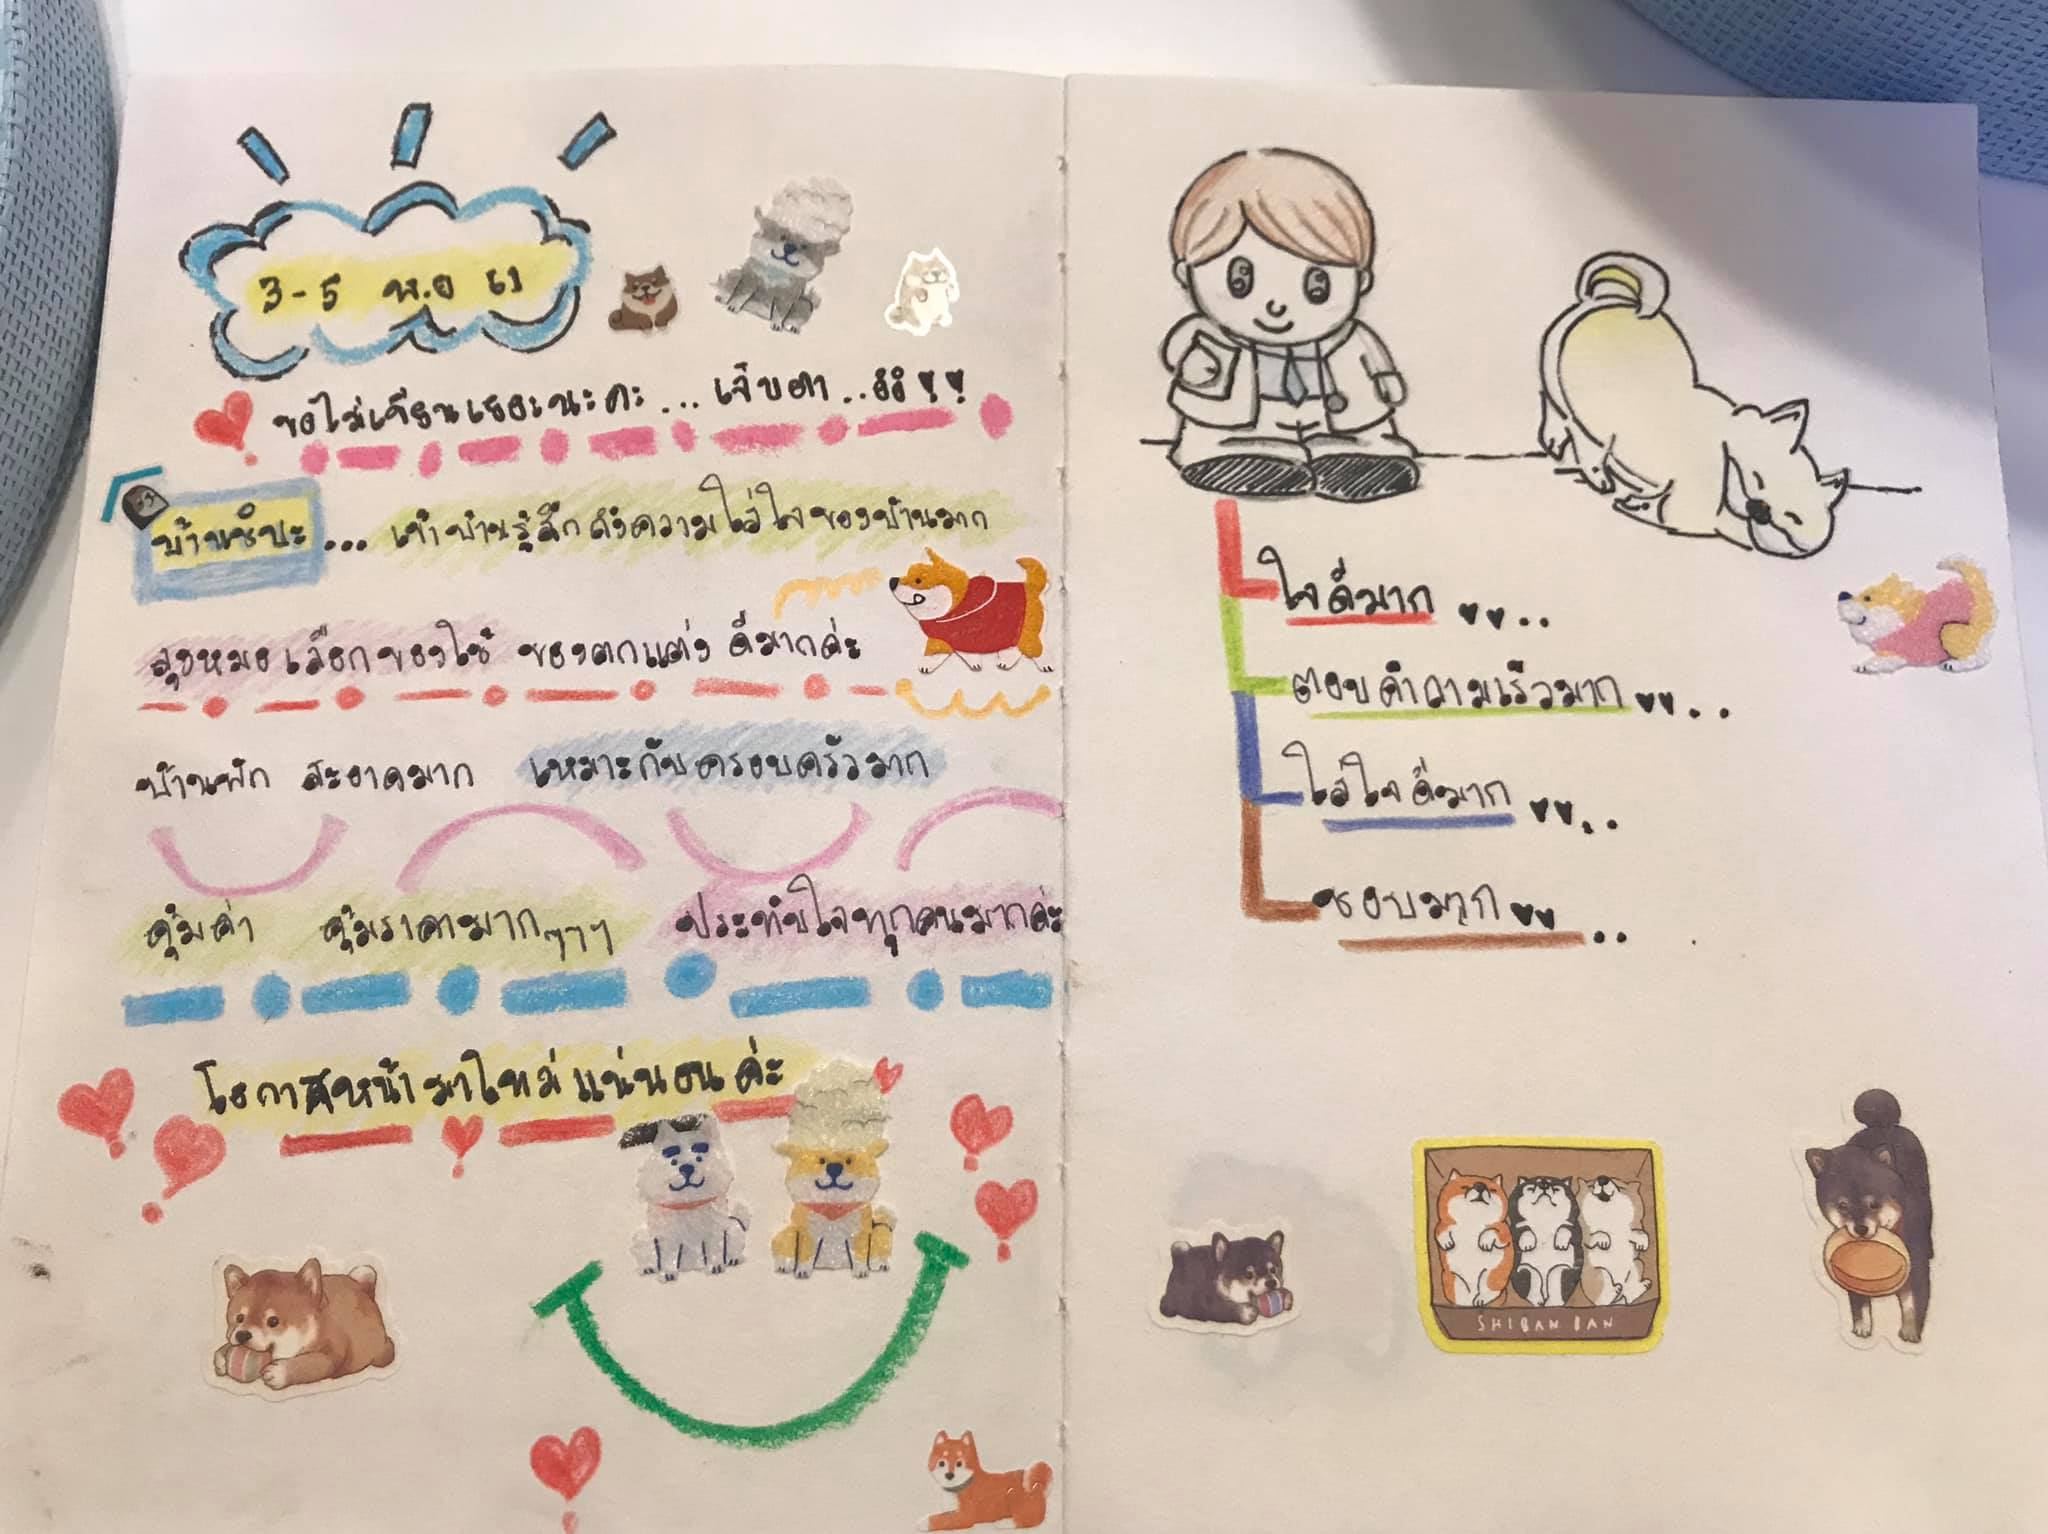 3-5 พ.ย 61
ขอไม่เขียนเยอะนะคะ... เจ็บตา..อิอิ
บ้านชิบะ... เข้าบ้านรู้สึกถึงความใส่ใจของบ้านมาก
ลุงหมอเลือกของใช้ ของตกแต่ง ดีมากค่ะ
บ้านพัก สะอาดมาก เหมาะกับครอบครัวมาก
คุ้มค่า คุ้มราคามากๆๆๆ ประทับใจทุกคนมากค่ะ
โอกาสหน้ามาใหม่แน่นอนค่ะ
ใจดีมาก ..
ตอบคำถามเร็วมาก ..
ใส่ใจดีมาก ..
ชอบมาก ..
SHIBANBAN